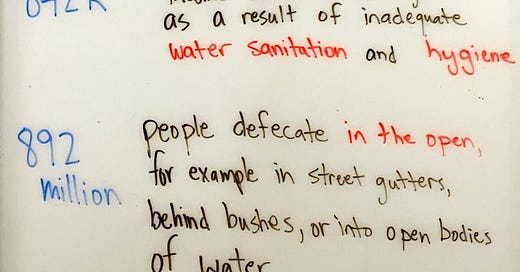 842K
as a result of inadequate
water sanitation and hygiene
892 million
people defecate in the open,
for example in street gutters,
behind bushes, or into open bodies
of water